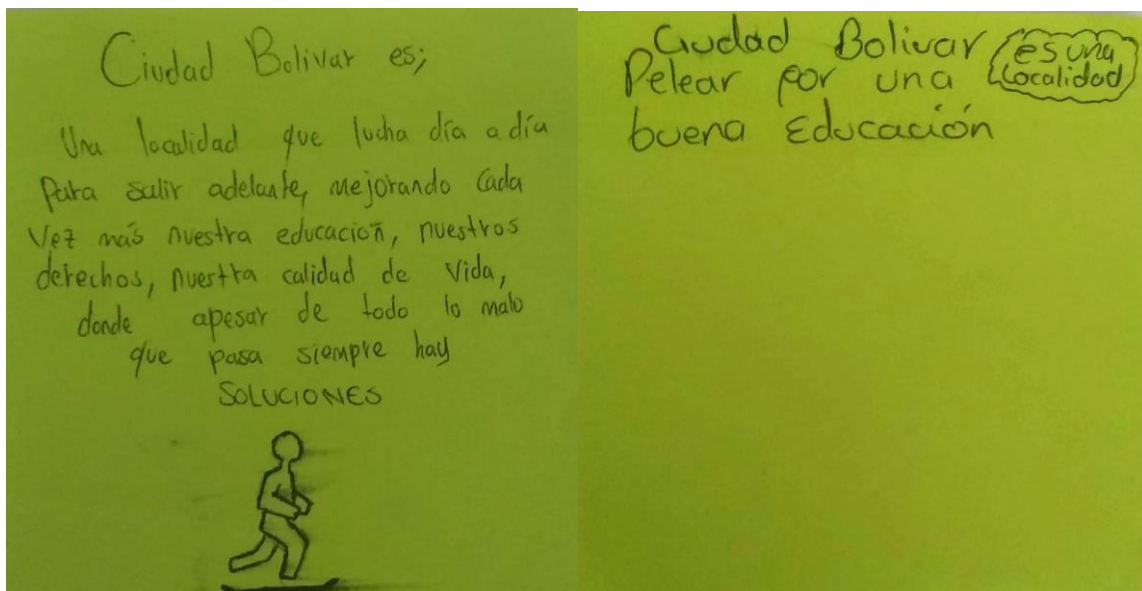 Ciudad Bolivar es;
Una localidad que lucha día a día
Para salir adelante, mejorando Cada
Vez más nuestra educación, nuestros
derechos, nuestra calidad de vida,
donde apesar de todo lo malo
que pasa siempre hay
SOLUCIONES
Ciudad Bolivar
es una
localidad
Pelear por una
buena Educación